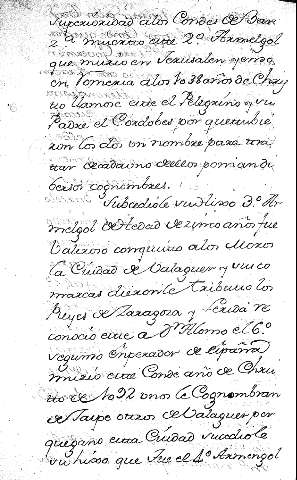 Superioridad a los Condes de Bar
murio este 2º Armelgol
que murio en Jerusalen
en Pomeria a los 1038 años de Chris
to llamose este el Peregrino y su
Padre el Cordobes por que tubie
ron los dos un nombre para tra
tar de cadauno dellos ponian di
bersos cognombres.
Subcediole su hijo 3º Ar
melgol de Hedad de zinco años fue
Valeroso conquisto a los Moros
la Ciudad de Valaguer y sus co
marcas dieronle tributo los
Reyes de Zaragoza y Lerida re
conocio este a Dn Alonso el 6º
segundo Enperador de españa
murio este Conde año de Chris
to de 1092 unos le Cognombran
de otros de Valaguer por
que gano esta Ciudad sucediole
su hijo que fue el 4º Armengol